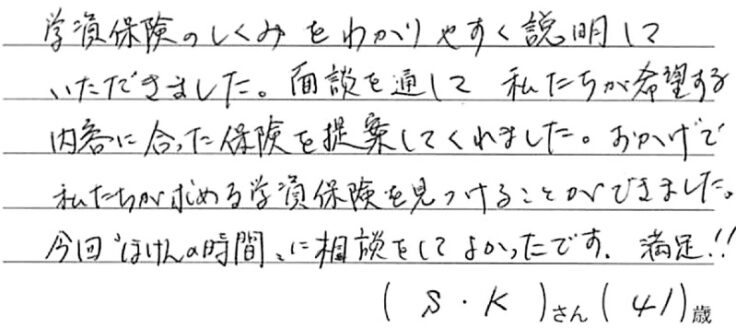 学資保険のしくみをわかりやすく説明して
いただきました。面談を通して 私たちが希望する
内容に合った保険を提案してくれました。おかげで
私たちが求める学資保険を見つけることができました。
今回“ほけんの時間„に相談をしてよかったです. 満足!!
( S・K )さん ( 41 )歳